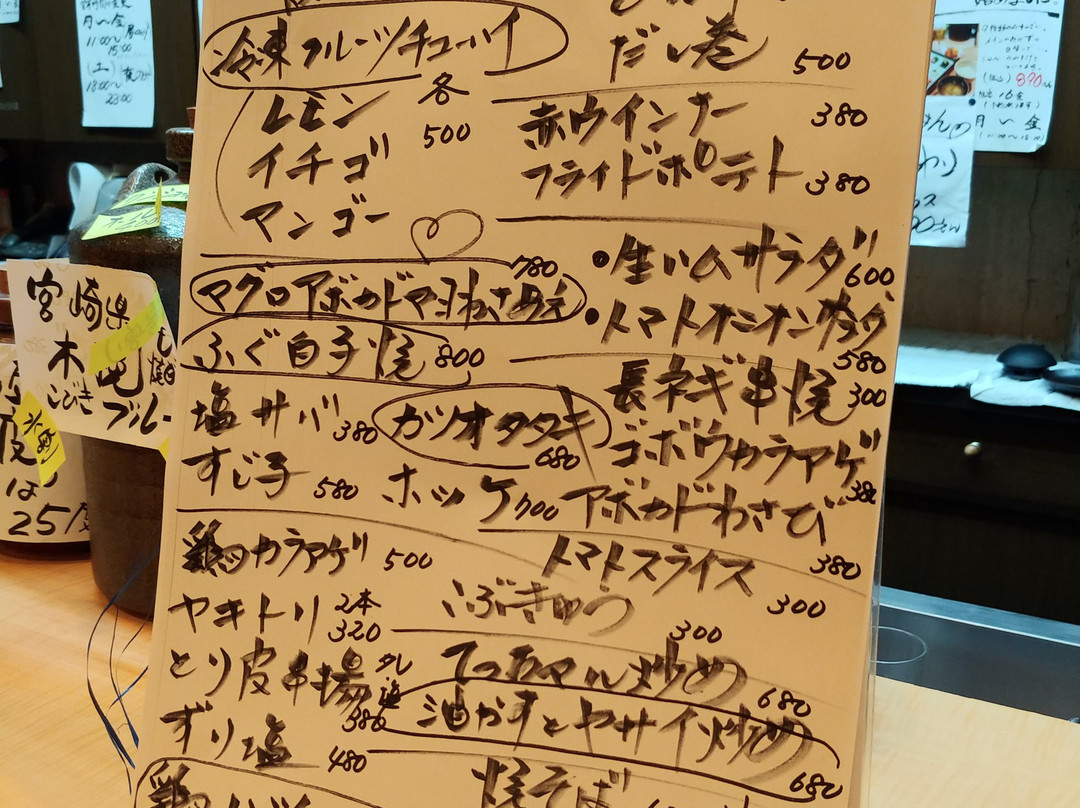 冷凍フルーツチューハイ
レモン 各
イチゴ 500
マンゴー
マグロアボカドマヨわさあえ 780
ふぐ白子焼 800
塩サバ 380
カツオタタキ 680
すじ子 580
ホッケ 700
鶏カラアゲ 500
ヤキトリ 2本 320
とり皮串揚 タレ 塩 380
ずり塩 480
鶏
だし巻 500
赤ウインナー 380
フライドポテト 380
・生ハムサラダ 600
・トマトオニオンサラダ 580
長ネギ串焼 300
ゴボウカラアゲ 380
アボカドわさび 380
トマトスライス 300
いぶきゅう 300
てっちゃマル炒め 680
油かすとヤサイ炒め 680
焼そば
宮崎県
木挽
こびき
ブルー
25度
月〜金
11:00〜
15:00
(土)
18:00〜
23:00
870
月〜金